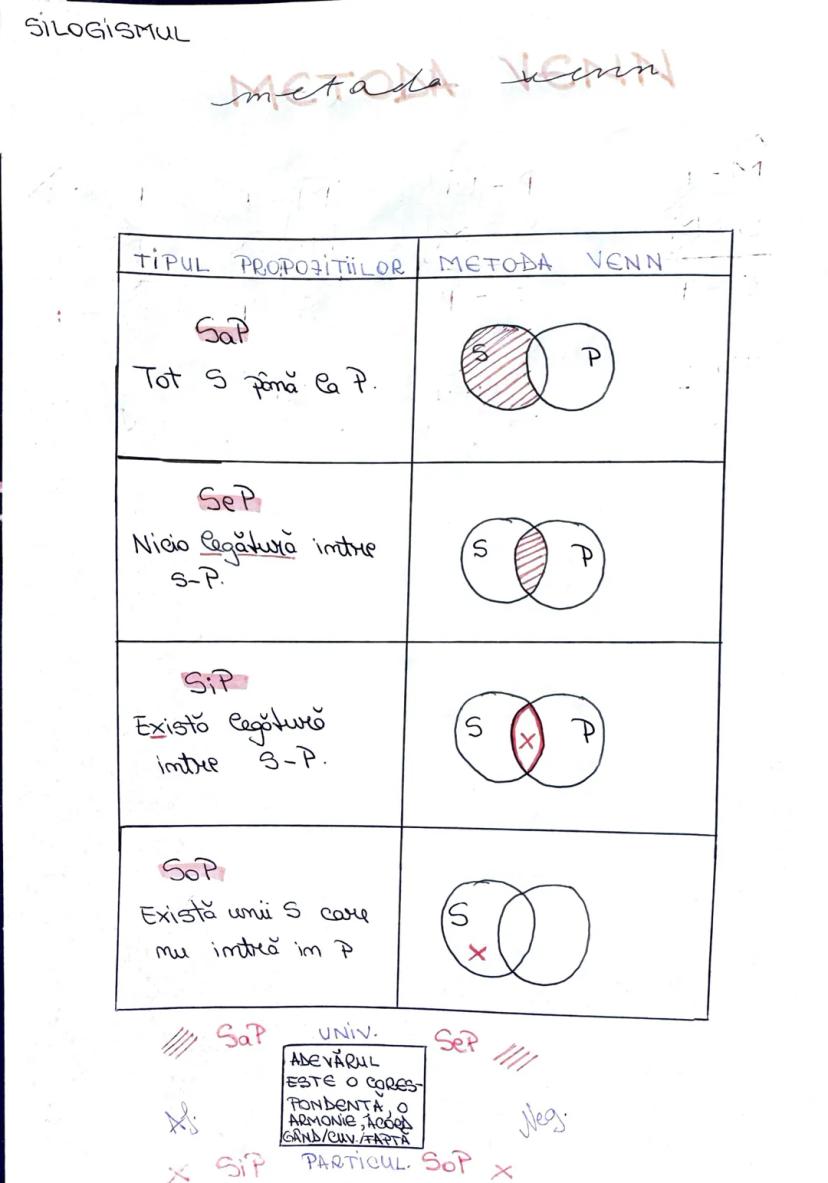 SILOGISMUL
METODA VENN
metoda venn
TIPUL PROPOZITIILOR
METODA VENN
SaP
Tot S până la P.
S P
SeP
Nicio legătură intre
S-P.
S P
SiP
Există legătură
intre S-P.
S X P
SoP
Există unii S care
nu intră in P
S
X
SaP UNIV. SeP
ADEVĂRUL
ESTE O CORES-
PONDENTĂ, O
ARMONIE, ACORD
GÂND/CUV./FAPTĂ
Af. Neg.
X SiP PARTICUL. SoP X